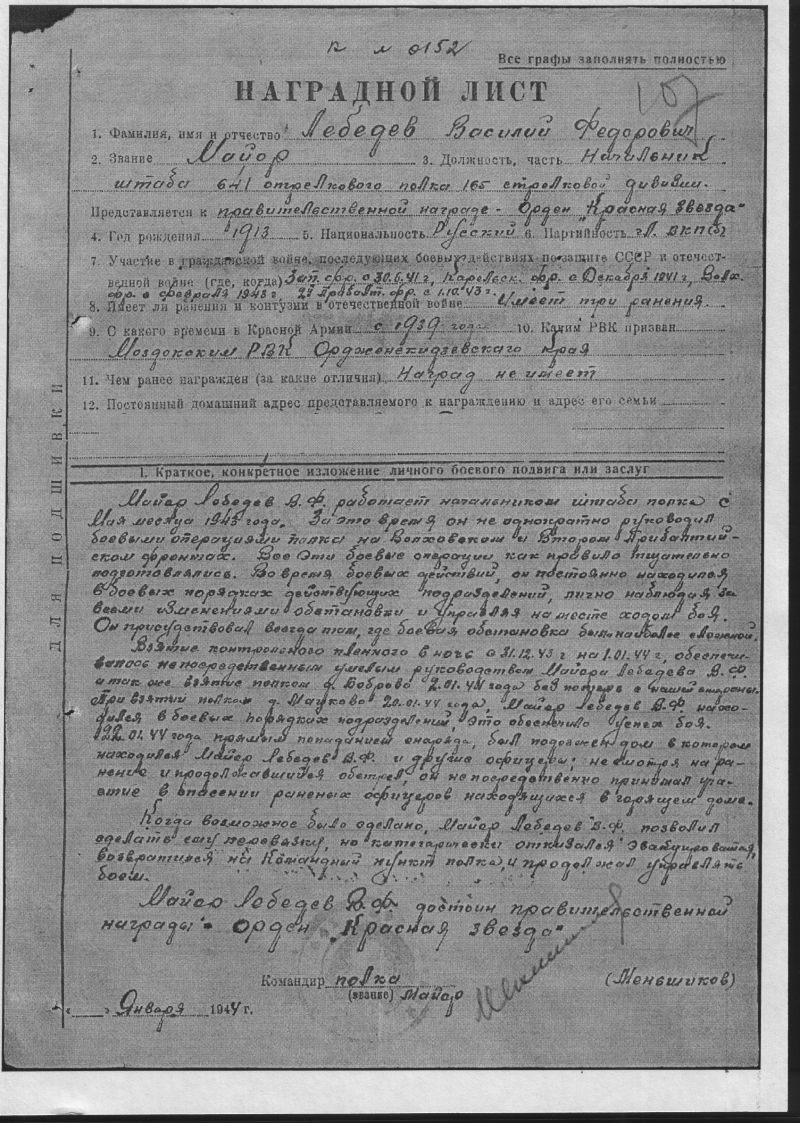 п м 0152
Все графы заполнять полностью
107
НАГРАДНОЙ ЛИСТ
1. Фамилия, имя и отчество Лебедев Василий Федорович
2. Звание Майор 3. Должность, часть Начальник
штаба 641 стрелкового полка 165 стрелковой дивизии.
Представляется к правительственной награде - Орден "Красная Звезда"
4. Год рождения 1913 5. Национальность Русский 6. Партийность чл. ВКП(б)
7. Участие в гражданской войне, последующих боевых действиях по защите СССР и отечест-
венной войне (где, когда) Зап. фр. с 30.6.41 г, Карельск. фр. с Декабря 1941 г, Волх.
фр. с февраля 1943 г. 2й Прибалт. фр. с 1.10.43 г.
8. Имеет ли ранения и контузии в отечественной войне Имеет три ранения.
9. С какого времени в Красной Армии с 1939 года 10. Каким РВК призван
Моздокским РВК Орджоникидзевского края
11. Чем ранее награжден (за какие отличия) Наград не имеет
12. Постоянный домашний адрес представляемого к награждению и адрес его семьи
ДЛЯ ПОДШИВКИ
I. Краткое, конкретное изложение личного боевого подвига или заслуг
Майор Лебедев В.Ф. работает начальником штаба полка с
Мая месяца 1943 года. За это время он не однократно руководил
боевыми операциями полка на Волховском и Втором Прибалтий-
ском фронтах. Все эти боевые операции как правило тщательно
подготовлялись. Во время боевых действий, он постоянно находился
в боевых порядках действующих подразделений, лично наблюдая за
всеми изменениями обстановки и управляя на месте ходом боя.
Он присудствовал всегда там, где боевая обстановка была наиболее сложной.
Взятие контрольного пленного в ночь с 31.12.43 г на 1.01.44 г, обеспечи-
валось непосредственным умелым руководством Майора Лебедева В.Ф.
а так же взятие полком д. Боброво 2.01.44 года без потерь с нашей стороны.
При взятии полком д. Мауково 20.01.44 года, Майор Лебедев В.Ф. нахо-
дился в боевых порядках подразделений, это обеспечило успех боя.
22.01.44 года прямым попаданием снаряда, был подожжен дом в котором
находился Майор Лебедев В.Ф. и другие офицеры; не смотря на ра-
нение и продолжавшийся обстрел он непосредственно принимал уча-
стие в спасении раненых офицеров находящихся в горящем доме.
Когда возможное было сделано, Майор Лебедев В.Ф. позволил
сделать ему перевязку, но категорически отказался эвакуироваться,
возвратился на Командный пункт полка, и продолжал управлять
боем.
Майор Лебедев В.Ф. достоин правительственной
награды - Орден "Красная звезда"
Командир полка
(звание) Майор (Меньшиков)
Января 1944 г.